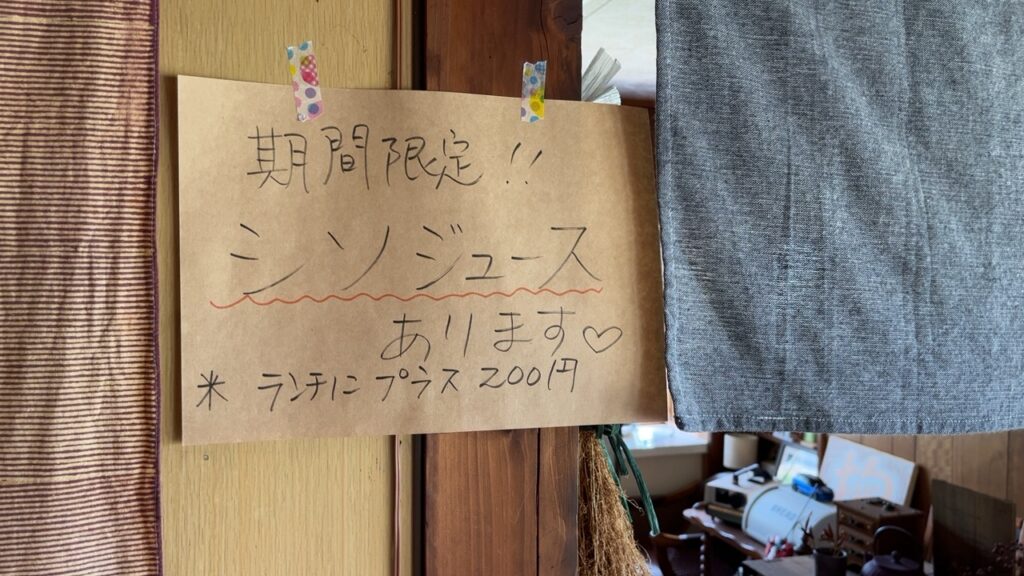 期間限定!!
シソジュース
あります♡
* ランチにプラス200円